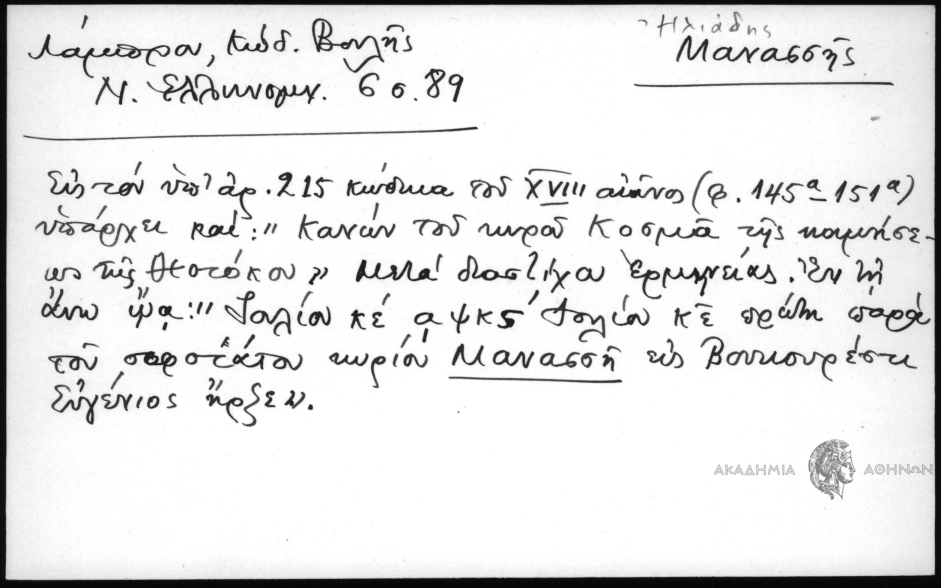 Λάμπρου, Κώδ. Βουλῆς
Ν. Ἑλληνομν. 6 σ. 89
Ἠλιάδης
Μανασσῆς
Εἰς τόν ὑπ' ἀρ. 215 κώδικα τοῦ XVIII αἰῶνος (φ. 145α – 151α)
ὑπάρχει καί: " Κανών τοῦ κυροῦ Κοσμᾶ τῆς κοιμήσε-
ως τῆς Θεοτόκου " μετά διαστίχου ἑρμηνείας. Ἐν τῇ
ἄνω ᾤᾳ: " Ἰουλίου κέ αψκς Ἰουλίου κε πρώτῃ παρὰ
τοῦ σοφοτάτου κυρίου Μανασσῆ εἰς Βουκουρέστι
Εὐγένιος ἤρξεν.
ΑΚΑΔΗΜΙΑ ΑΘΗΝΩΝ